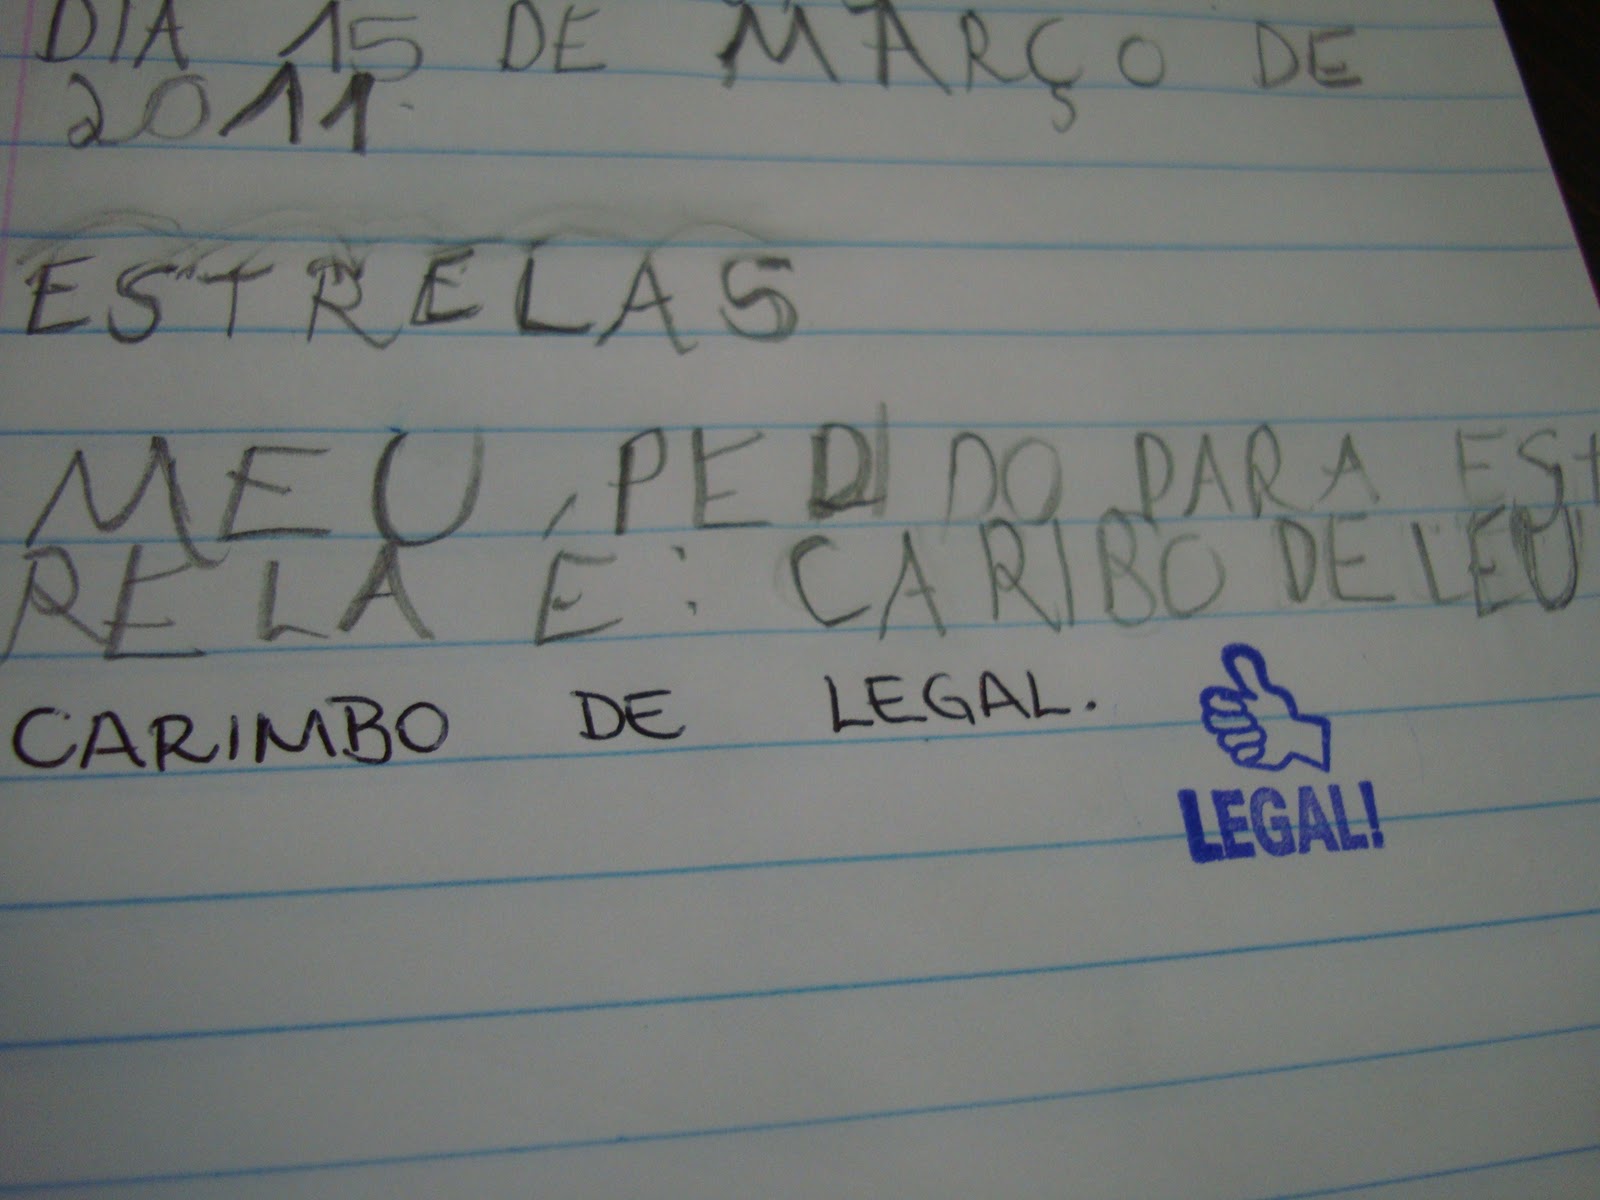 DIA 15 DE MARÇO DE
2011
ESTRELAS
MEU PEDIDO PARA EST
RELA É: CARIBO DE LEU
CARIMBO DE LEGAL.
LEGAL!